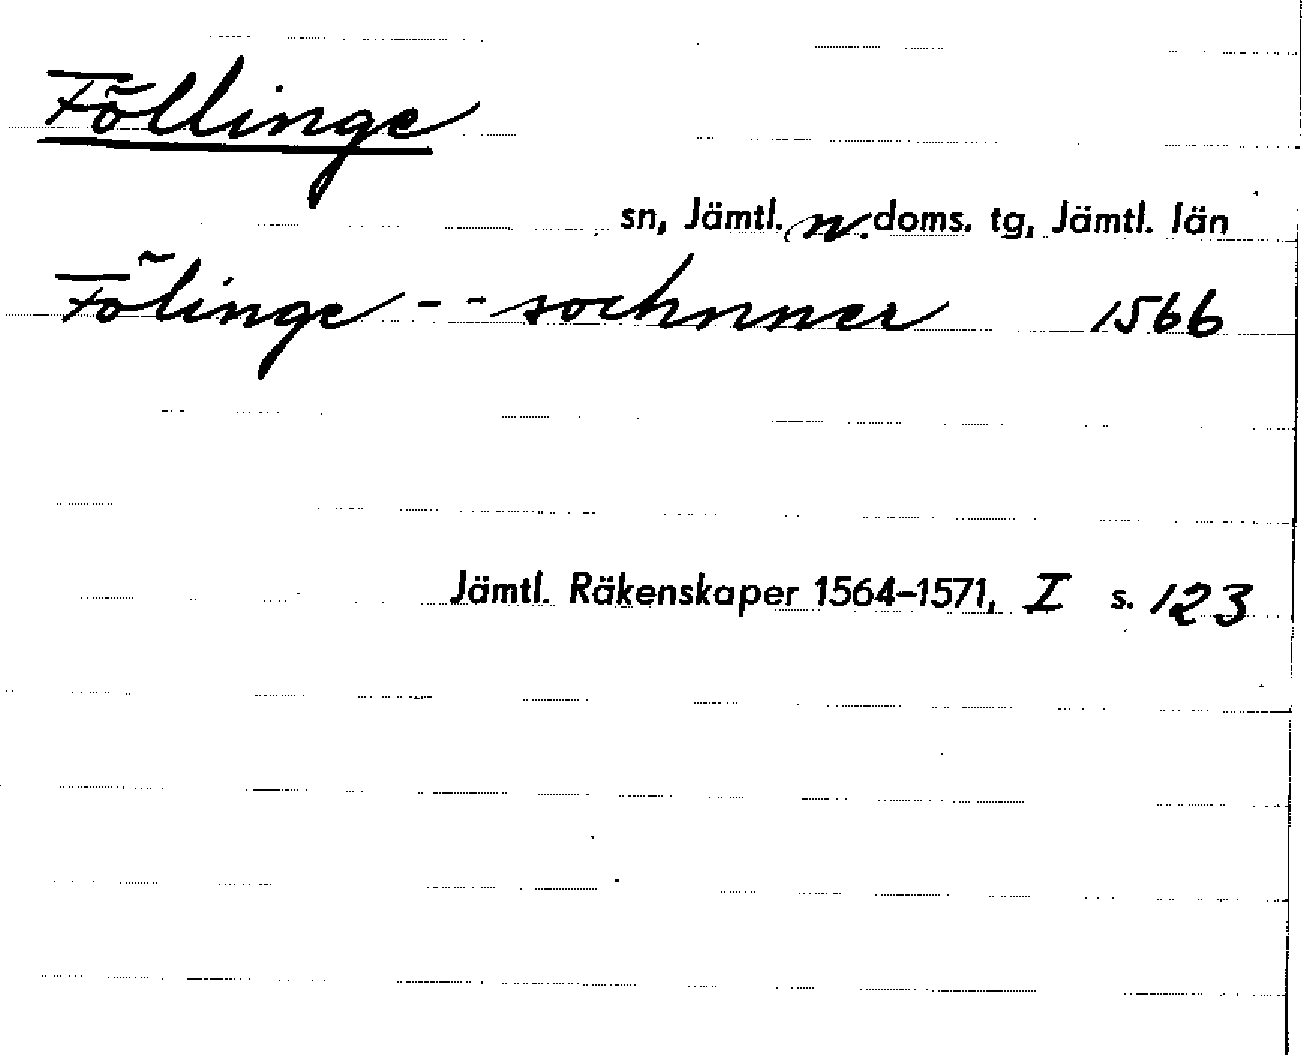 Föllinge
sn, Jämtl. n. doms. tg, Jämtl. län
Fölinge - - sochnner 1566
Jämtl. Räkenskaper 1564-1571, I s. 123